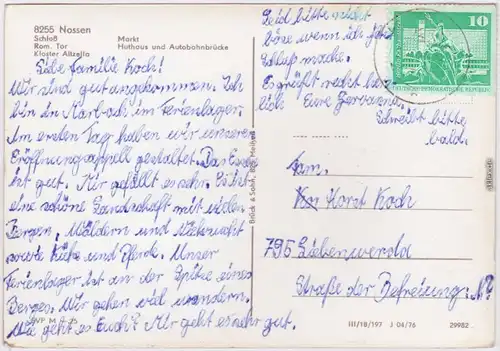 8255 Nossen
Schloß Markt
Rom. Tor Huthaus und Autobahnbrücke
Kloster Altzella
Liebe Familie Koch!
Wir sind gut angekommen. Ich
bin in Marbach im Ferienlager.
Am ersten Tag haben wir unseren
Eröffnungsappell gestaltet. Das Essen
ist gut. Mir gefällt es sehr. Es ist
eine schöne Landschaft mit vielen
Bergen, Wäldern und Viehzucht
sowie Kühe und Pferde. Unser
Ferienlager ist an der Spitze eines
Berges. Wir gehen viel wandern.
Wie geht es Euch? Mir geht es sehr gut.
Seid bitte nicht
böse wenn ich jetzt
Schluß mache.
Es grüßt recht herz-
lich Eure
Schreibt bitte
bald.
10
DEUTSCHE DEMOKRATISCHE REPUBLIK
Fam.
Horst Koch
795 Liebenwerda
Straße der Befreiung
Brück & Sohn,
III/18/197 J 04/76 29982